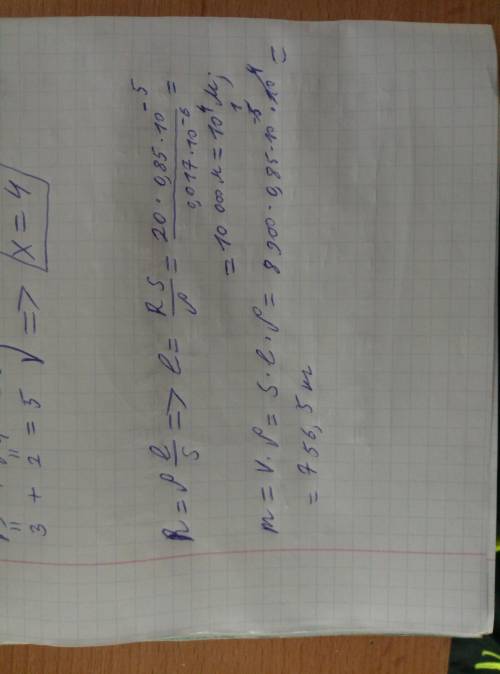 3 + 2 = 5 => x = 4
R = ρ l/S => l = RS/ρ = 20 · 0,85 · 10⁻⁵ / 0,017 · 10⁻⁶ =
= 10 000 м = 10⁴ м;
m = V · ρ = S · l · ρ = 8 900 · 0,85 · 10⁻⁵ · 10⁴ =
= 756,5 м